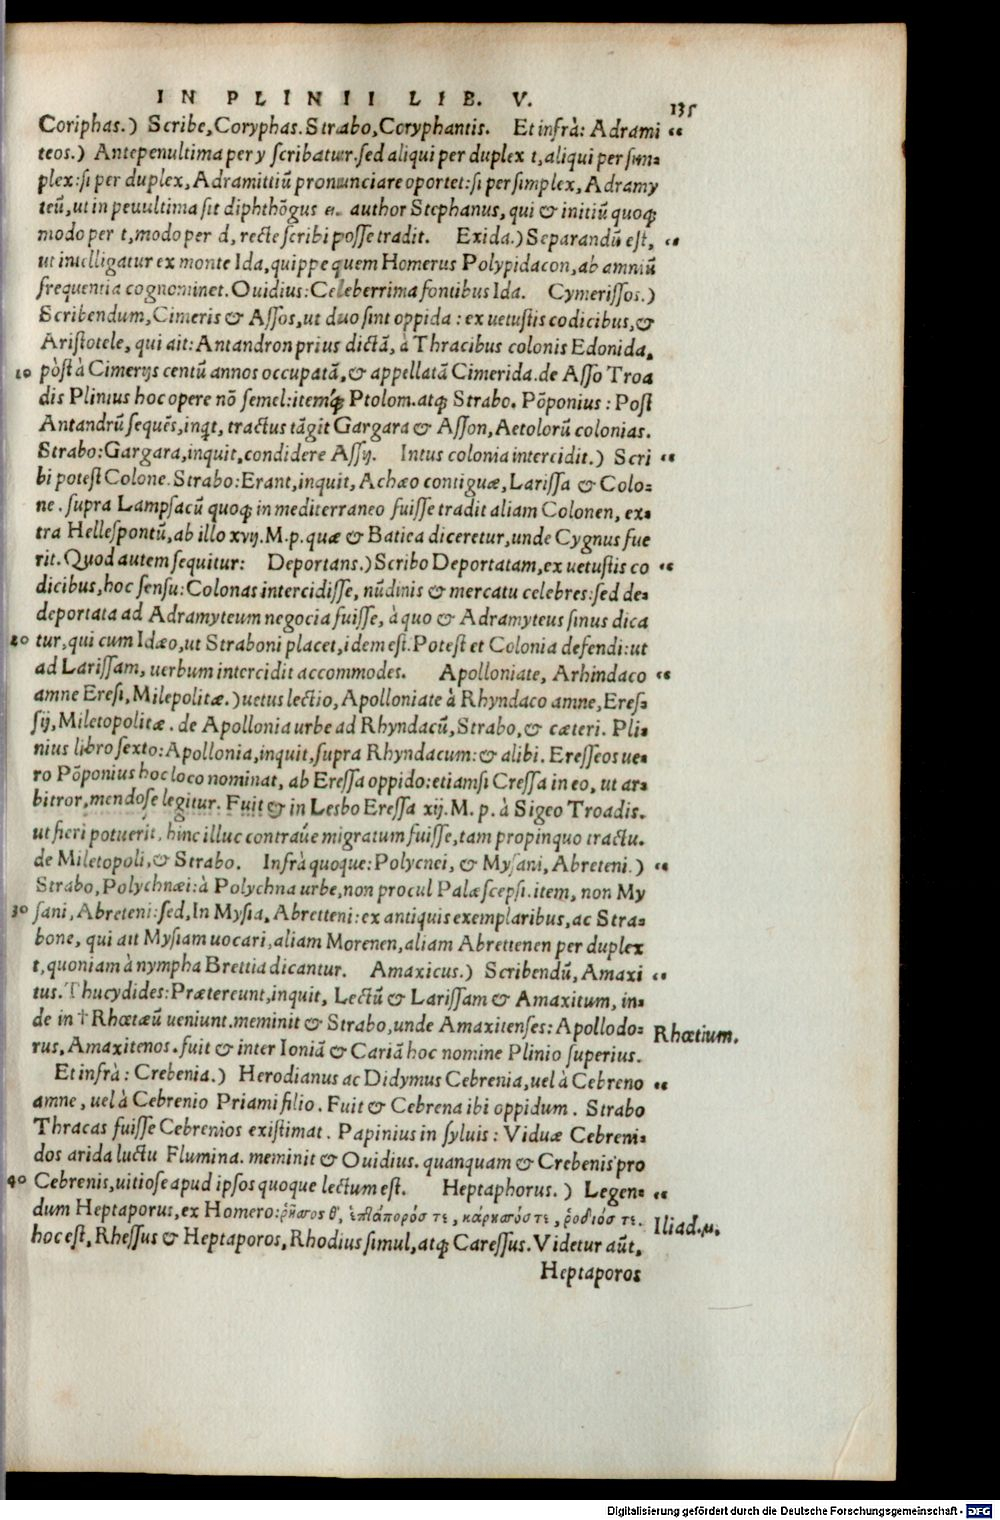 IN PLINII LIB. V.
135
Coriphas.) Scribe, Coryphas. Strabo, Coryphantis. Et infrà: Adrami “
teos.) Antepenultima per y scribatur. sed aliqui per duplex t, aliqui per sim=
plex: si per duplex, Adramittiũ pronunciare oportet: si per simplex, Adramy
teũ, ut in peuultima sit diphthõgus ει. author Stephanus, qui & initiũ quoq;
modo per t, modo per d, recte scribi posse tradit. Exida.) Separandũ est, “
ut intelligatur ex monte Ida, quippe quem Homerus Polypidacon, ab amniũ
frequentia cognominet. Ouidius: Celeberrima fontibus Ida. Cymerissos.)
Scribendum, Cimeris & Assos, ut duo sint oppida: ex uetustis codicibus, &
Aristotele, qui ait: Antandron prius dictã, à Thracibus colonis Edonida,
10 pòst à Cimerijs centũ annos occupatã, & appellatã Cimerida. de Asso Troa
dis Plinius hoc opere nõ semel: itemq́; Ptolom. atq; Strabo. Põponius: Post
Antandrũ sequẽs, inqt, tractus tãgit Gargara & Asson, Aetolorũ colonias.
Strabo: Gargara, inquit, condidere Assij. Intus colonia intercidit.) Scri “
bi potest Colone. Strabo: Erant, inquit, Achæo contiguæ, Larissa & Colo=
ne. supra Lampsacũ quoq; in mediterraneo fuisse tradit aliam Colonen, ex=
tra Hellespontũ, ab illo xvij. M. p. quæ & Batica diceretur, unde Cygnus fue
rit. Quod autem sequitur: Deportans.) Scribo Deportatam, ex uetustis co “
dicibus, hoc sensu: Colonas intercidisse, nũdinis & mercatu celebres: sed de=
deportata ad Adramyteum negocia fuisse, à quo & Adramyteus sinus dica
20 tur, qui cum Idæo, ut Straboni placet, idem est. Potest et Colonia defendi: ut
ad Larissam, uerbum intercidit accommodes. Apolloniate, Arhindaco “
amne Eresi, Milepolitæ.) uetus lectio, Apolloniate à Rhyndaco amne, Eres=
sij, Miletopolitæ. de Apollonia urbe ad Rhyndacũ, Strabo, & cæteri. Pli=
nius libro sexto: Apollonia, inquit, supra Rhyndacum: & alibi. Eresseos ue=
ro Põponius hoc loco nominat, ab Eressa oppido: etiamsi Cressa in eo, ut ar=
bitror, mendose legitur. Fuit & in Lesbo Eressa xij. M. p. à Sigeo Troadis.
ut fieri potuerit, hinc illuc contraúe migratum fuisse, tam propinquo tractu.
de Miletopoli, & Strabo. Infrà quoque: Polycnei, & Mysani, Abreteni.) “
Strabo, Polychnæi: à Polychna urbe, non procul Palæscepsi. item, non My
30 sani, Abreteni: sed, In Mysia, Abretteni: ex antiquis exemplaribus, ac Stra=
bone, qui ait Mysiam uocari, aliam Morenen, aliam Abrettenen per duplex
t, quoniam à nympha Brettia dicantur. Amaxicus.) Scribendũ, Amaxi “
tus. Thucydides: Prætereunt, inquit, Lectũ & Larissam & Amaxitum, in=
de in † Rhœtæũ ueniunt. meminit & Strabo, unde Amaxitenses: Apollodo= Rhœtium.
rus, Amaxitenos. fuit & inter Ioniã & Cariã hoc nomine Plinio superius.
Et infrà: Crebenia.) Herodianus ac Didymus Cebrenia, uel à Cebreno “
amne, uel à Cebrenio Priami filio. Fuit & Cebrena ibi oppidum. Strabo
Thracas fuisse Cebrenios existimat. Papinius in syluis: Viduæ Cebreni=
dos arida luctu Flumina. meminit & Ouidius. quanquam & Crebenis pro
40 Cebrenis, uitiose apud ipsos quoque lectum est. Heptaphorus.) Legen= “
dum Heptaporus, ex Homero: ῥῆσος θ', ἑπτάπορός τε, κάρησός τε, ῥοδιός τε. Iliad. μ.
hoc est, Rhessus & Heptaporos, Rhodius simul, atq; Caressus. Videtur aũt,
Heptaporos
Digitalisierung gefördert durch die Deutsche Forschungsgemeinschaft - DFG